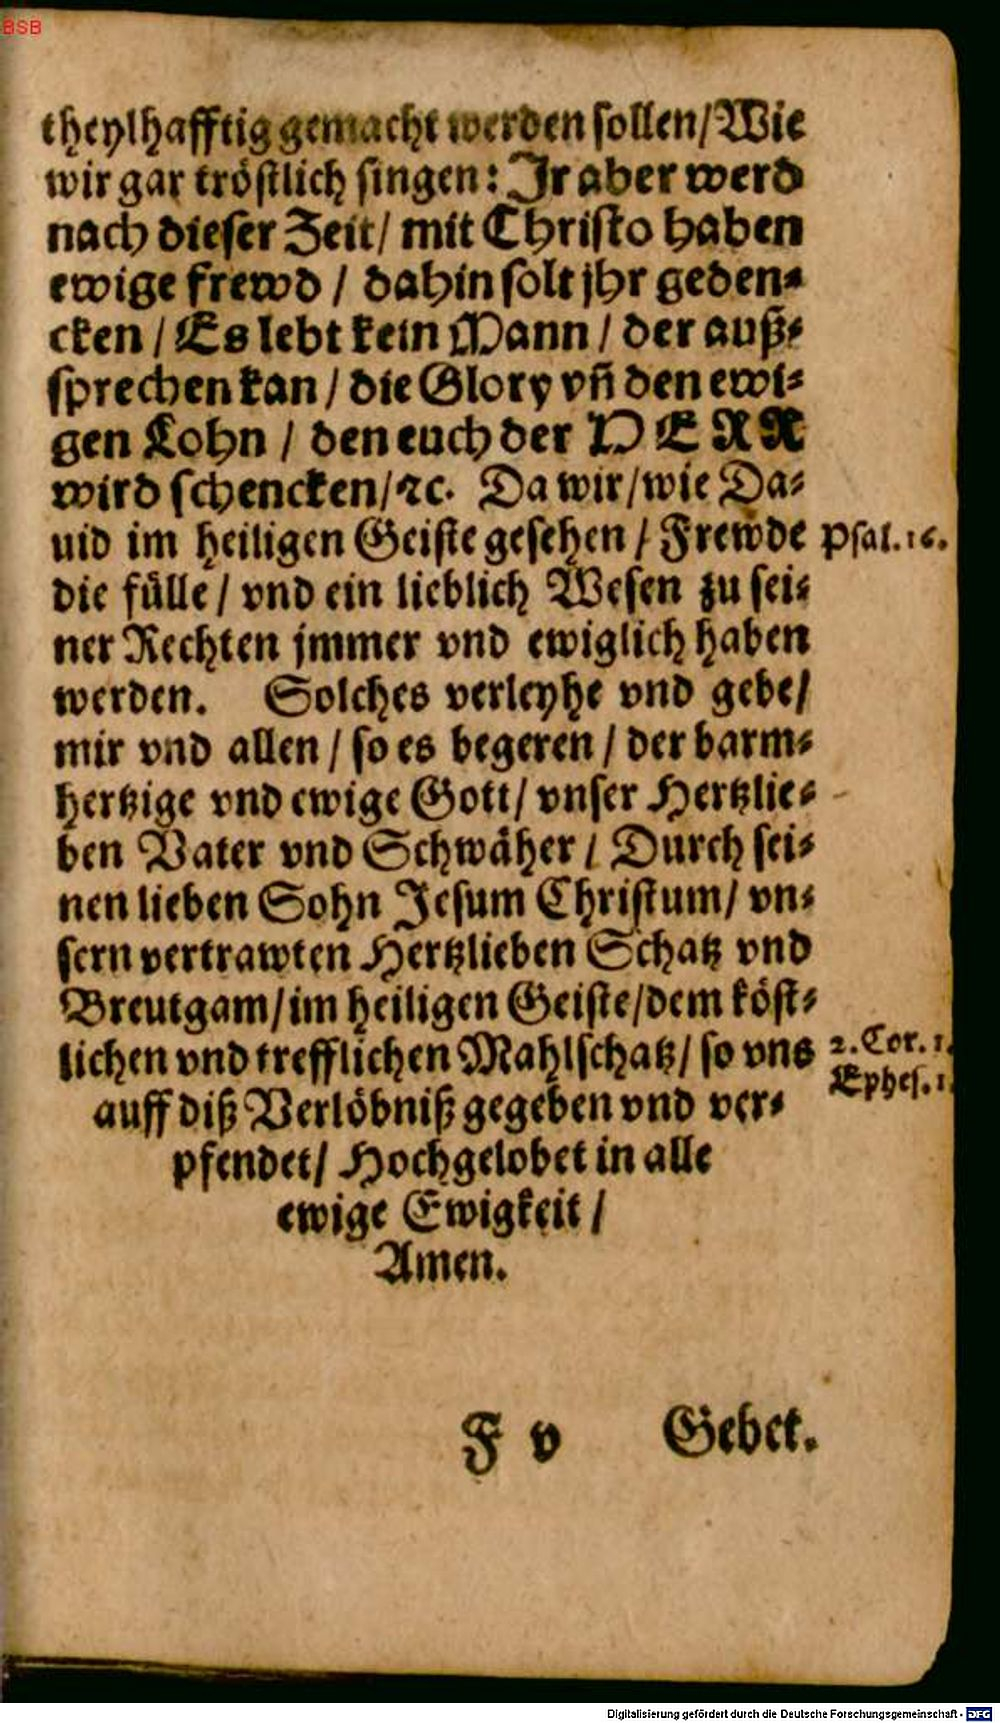 BSB
theylhafftig gemacht werden sollen/ Wie
wir gar tröstlich singen: Jr aber werd
nach dieser Zeit/ mit Christo haben
ewige frewd / dahin solt jhr geden-
cken / Es lebt kein Mann / der auß-
sprechen kan / die Glory vñ den ewi-
gen Lohn / den euch der HERR
wird schencken/ ꝛc. Da wir/ wie Da-
uid im heiligen Geiste gesehen / Frewde
Psal. 16.
die fülle / vnd ein lieblich Wesen zu sei-
ner Rechten jmmer vnd ewiglich haben
werden. Solches verleyhe vnd gebe/
mir vnd allen / so es begeren / der barm-
hertzige vnd ewige Gott/ vnser Hertzlie-
ben Vater vnd Schwäher / Durch sei-
nen lieben Sohn Jesum Christum/ vn-
sern vertrawten Hertzlieben Schatz vnd
Breutgam/ im heiligen Geiste/ dem köst-
lichen vnd trefflichen Mahlschatz/ so vns
2. Cor. 1.
Ephes. 1.
auff diß Verlöbniß gegeben vnd ver-
pfendet/ Hochgelobet in alle
ewige Ewigkeit /
Amen.
F v Gebet.
Digitalisierung gefördert durch die Deutsche Forschungsgemeinschaft - DFG